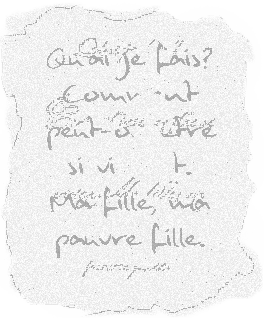 Qu'ai je fais?
Comment
peut-on être
si
Ma fille, ma
pauvre fille.